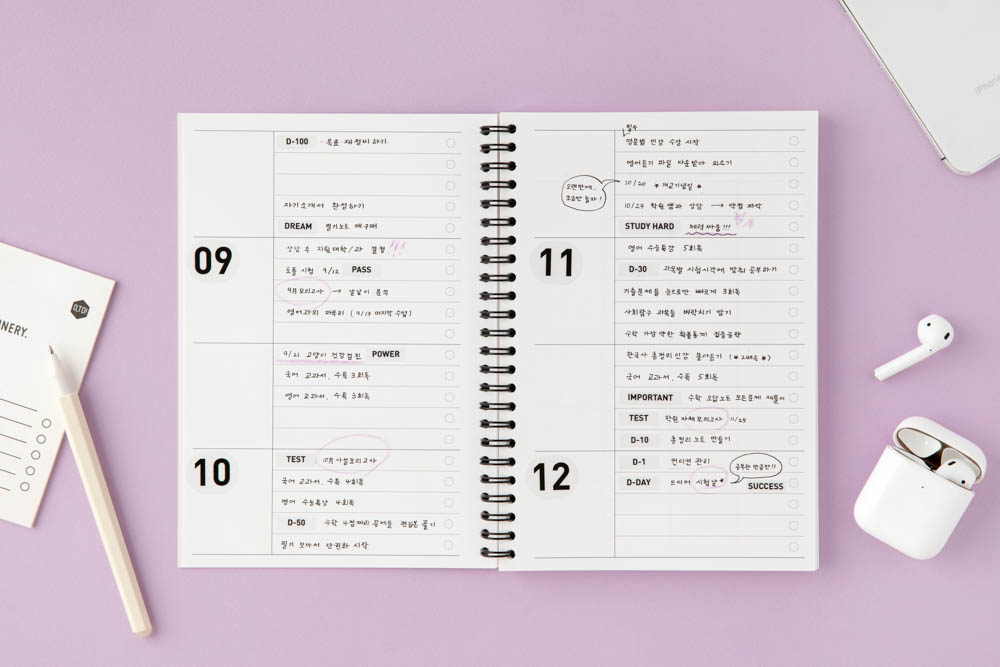 NERY.
D-100 목표 재정비하기
자기소개서 완성하기
DREAM 필기노트 재구매
09
상담 후 지원대학/과 결정!!!
오픽 시험 9/12 PASS
9月모의고사 → 낱낱이 분석
영어과외 마무리 (9/17 마지막 수업)
9/21 고양이 건강검진 POWER
국어 교과서, 수특 3회독
영어 교과서, 수특 3회독
10
TEST 10月사설모의고사
국어 교과서, 수특 4회독
영어 수능특강 4회독
D-50 수학 4점짜리 문제들
풀기
필기 모아서 단권화 시작
필수
영문법 인강 수강 시작
영어듣기 파일 다운받아 외우기
오랜만에..
조금만 놀자!
10/20 *개교기념일*
10/27 학원쌤과 상담 → 약점 파악
STUDY HARD 체력싸움!!!
11
영어 수능특강 5회독
D-30 과목별 시험시각에 맞춰 공부하기
기출문제들 눈으로만 빠르게 3회독
사회탐구 과목들 벼락치기 말기
수학 가장 약한 확률통계 집중공략
한국사 총정리인강 몰아듣기 (*2배속*)
국어 교과서, 수특 5회독
IMPORTANT 수학 오답노트 모든문제 재풀이
TEST 학원 자체모의고사 11/25
D-10 총정리 노트 만들기
12
D-1 컨디션 관리
공부한 만큼만!!
D-DAY 드디어 시험날*
SUCCESS
iPhone